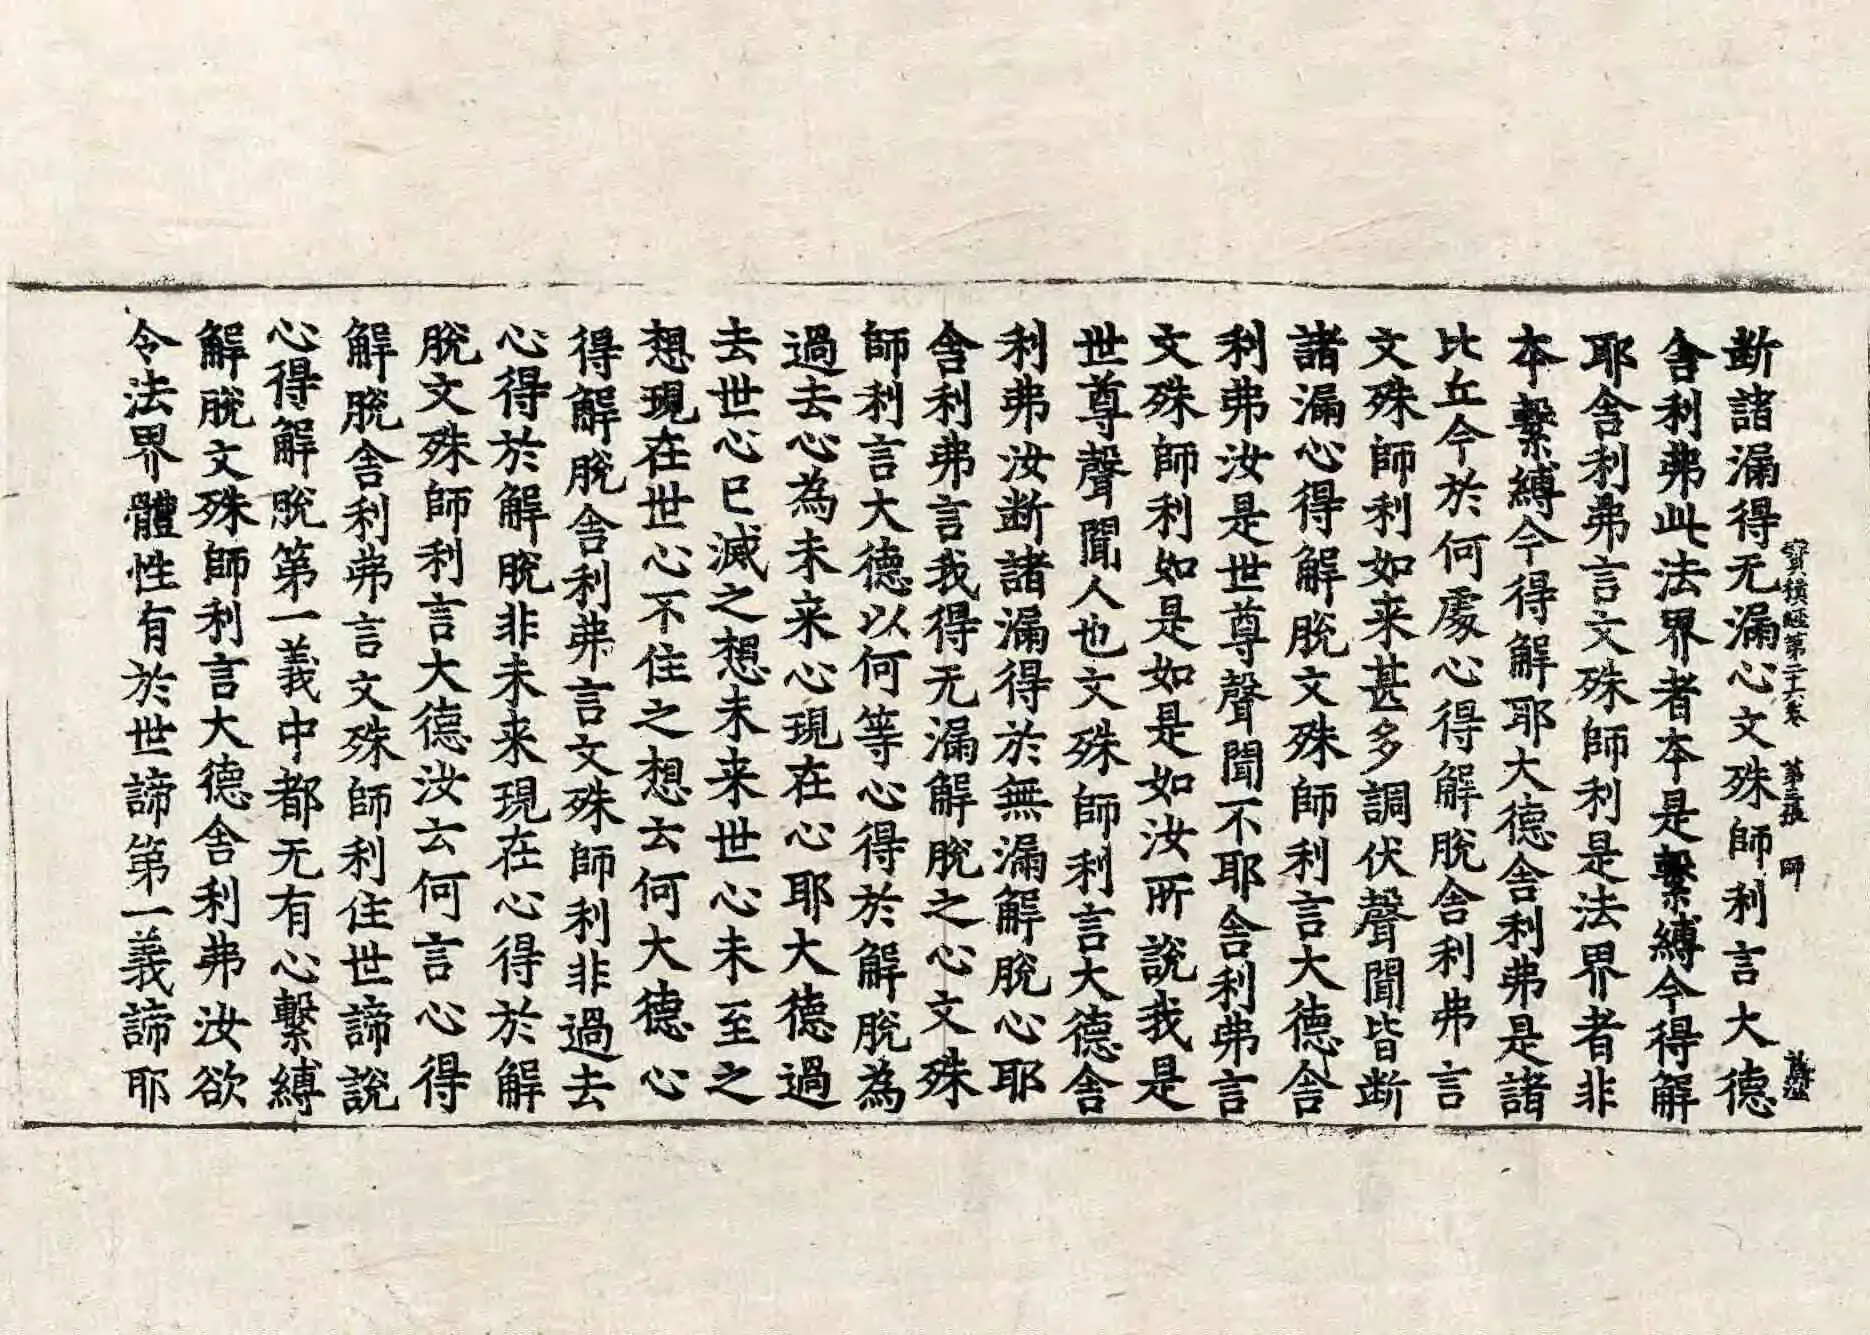 寶積經第二十六卷 第三張 師
斷諸漏得无漏心文殊師利言大德
舍利弗此法界者本是繫縛今得解
耶舍利弗言文殊師利是法界者非
本繫縛今得解耶大德舍利弗是諸
比丘今於何處心得解脫舍利弗言
文殊師利如来甚多調伏聲聞皆断
諸漏心得解脫文殊師利言大德舍
利弗汝是世尊聲聞不耶舍利弗言
文殊師利如是如是如汝所說我是
世尊聲聞人也文殊師利言大德舍
利弗汝断諸漏得於無漏解脫心耶
舍利弗言我得无漏解脫之心文殊
師利言大德以何等心得於解脫為
過去心為未来心現在心耶大德過
去世心已滅之想未来世心未至之
想現在世心不住之想云何大德心
得解脫舍利弗言文殊師利非過去
心得於解脫非未来現在心得於解
脫文殊師利言大德汝云何言心得
解脫舍利弗言文殊師利住世諦說
心得解脫第一義中都无有心繫縛
解脫文殊師利言大德舍利弗汝欲
令法界體性有於世諦第一義諦耶